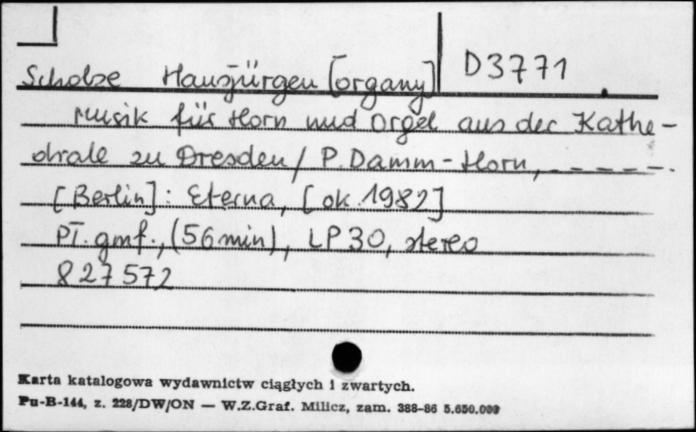 D3771
Scholze Hansjürgen [organy]
Musik für Horn und Orgel aus der Kathe-
drale zu Dresden / P. Damm - Horn, - - - - -.
[Berlin]: Eterna, [ok. 1982]
Pł. gmf., (56 min), LP 30, stereo
827572
Karta katalogowa wydawnictw ciągłych i zwartych.
Pu-B-144, z. 228/DW/ON — W.Z.Graf. Milicz, zam. 388-86 5.650.000